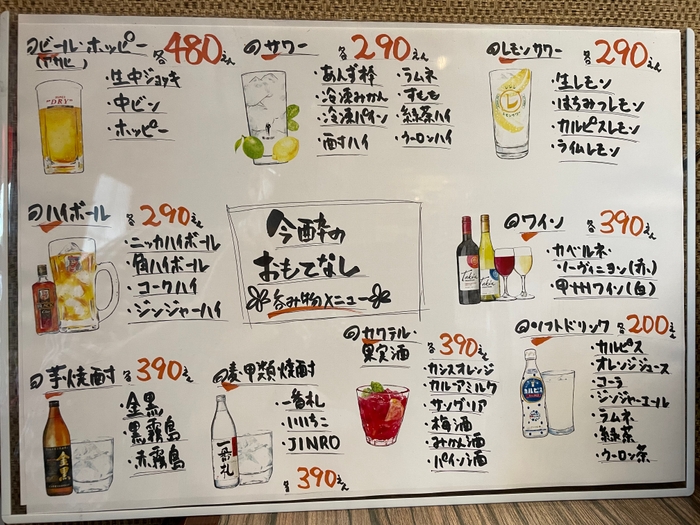 ビール・ホッピー
(アサヒ)
各480えん
・生中ジョッキ
・中ビン
・ホッピー
サワー
各290えん
・あんず棒
・冷凍みかん
・冷凍パイン
・酎ハイ
・ラムネ
・すもも
・緑茶ハイ
・ウーロンハイ
レモンサワー
各290えん
・生レモン
・はちみつレモン
・カルピスレモン
・ライムレモン
ハイボール
各290えん
・ニッカハイボール
・角ハイボール
・コークハイ
・ジンジャーハイ
今酔の
おもてなし
呑み物メニュー
ワイン
各390えん
・カベルネ・
ソーヴィニヨン(赤)
・甲州ワイン(白)
芋焼酎
各390えん
・金黒
・黒霧島
・赤霧島
金黒
麦・甲類焼酎
・一番札
・いいちこ
・JINRO
各390えん
一番札
カクテル・
果実酒
各390えん
・カシスオレンジ
・カルーアミルク
・サングリア
・梅酒
・みかん酒
・パイン酒
ソフトドリンク
各200えん
・カルピス
・オレンジジュース
・コーラ
・ジンジャーエール
・ラムネ
・緑茶
・ウーロン茶
カルピス
"DRY"